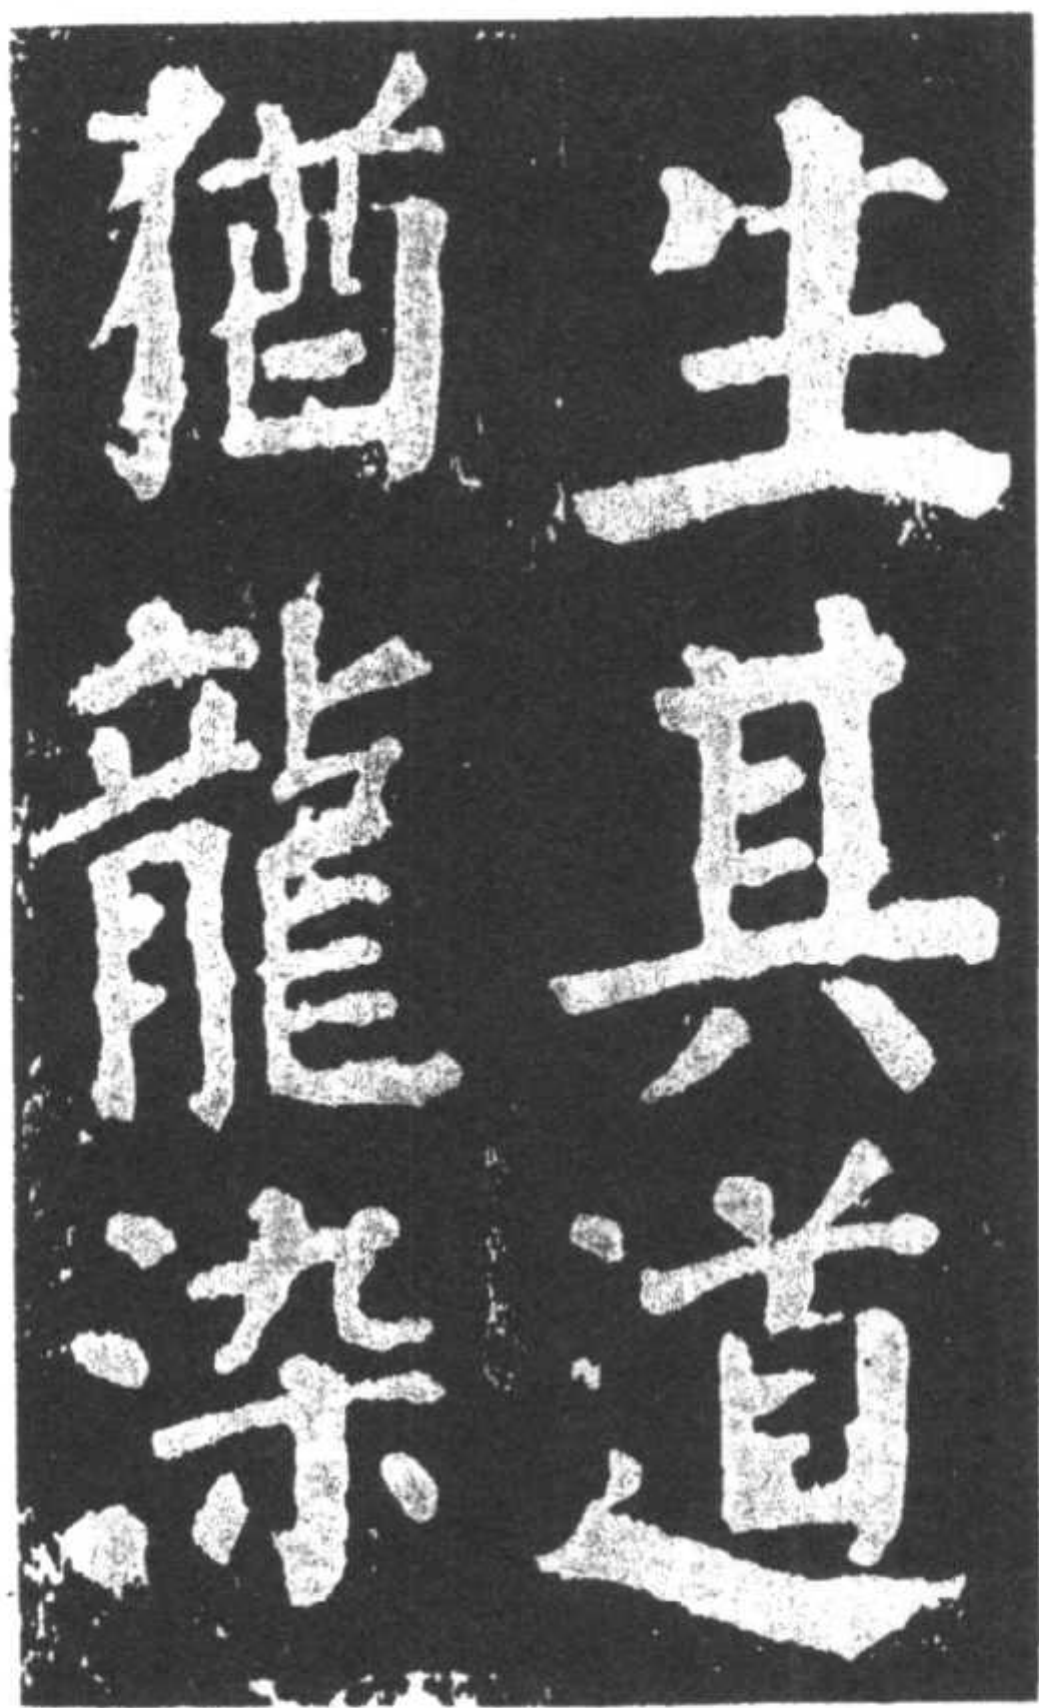 生其道
猶龍染